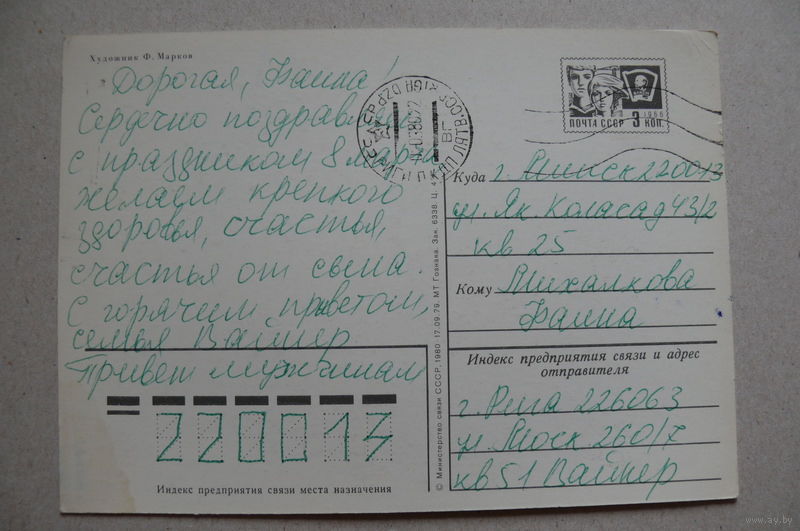 Художник Ф. Марков
Дорогая, Фаина!
Сердечно поздравляем
с праздником 8 марта
желаем крепкого
здоровья, счастья,
счастья от сына.
С горячим приветом,
семья Вайнер
Привет мужчинам
220013
Индекс предприятия связи места назначения
© Министерство связи СССР, 1980. 17.09.79. МТ Гознака. Зак. 6338. Ц. 4
ПОЧТА СССР 3 КОП.
1966
Куда г. Минск 220013
ул. Як. Коласа д 43/2
кв 25
Кому Михалкова
Фаина
Индекс предприятия связи и адрес
отправителя
г. Рига 226063
ул. Моск 260/7
кв 51 Вайнер
www.ay.by